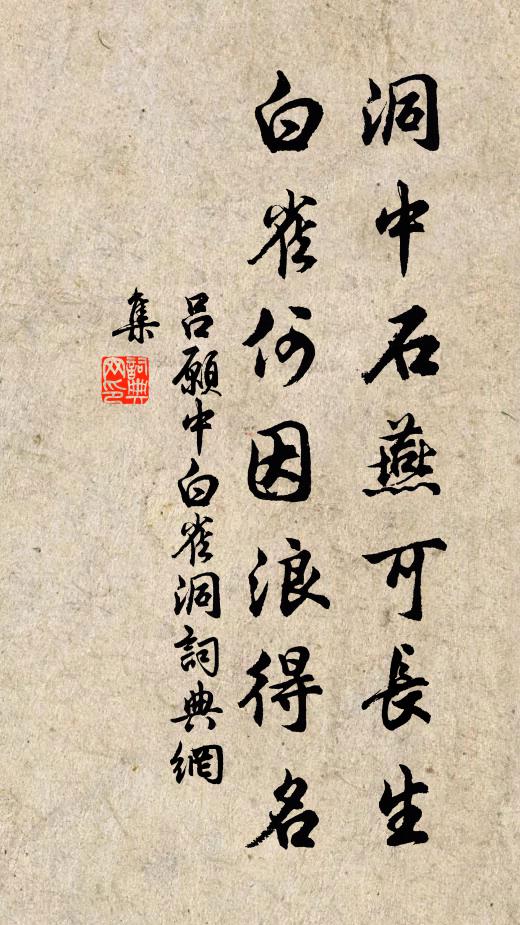 洞中石燕可長生
白雀何因浪得名
呂願中白雀洞詞典網
集
詞典
网印